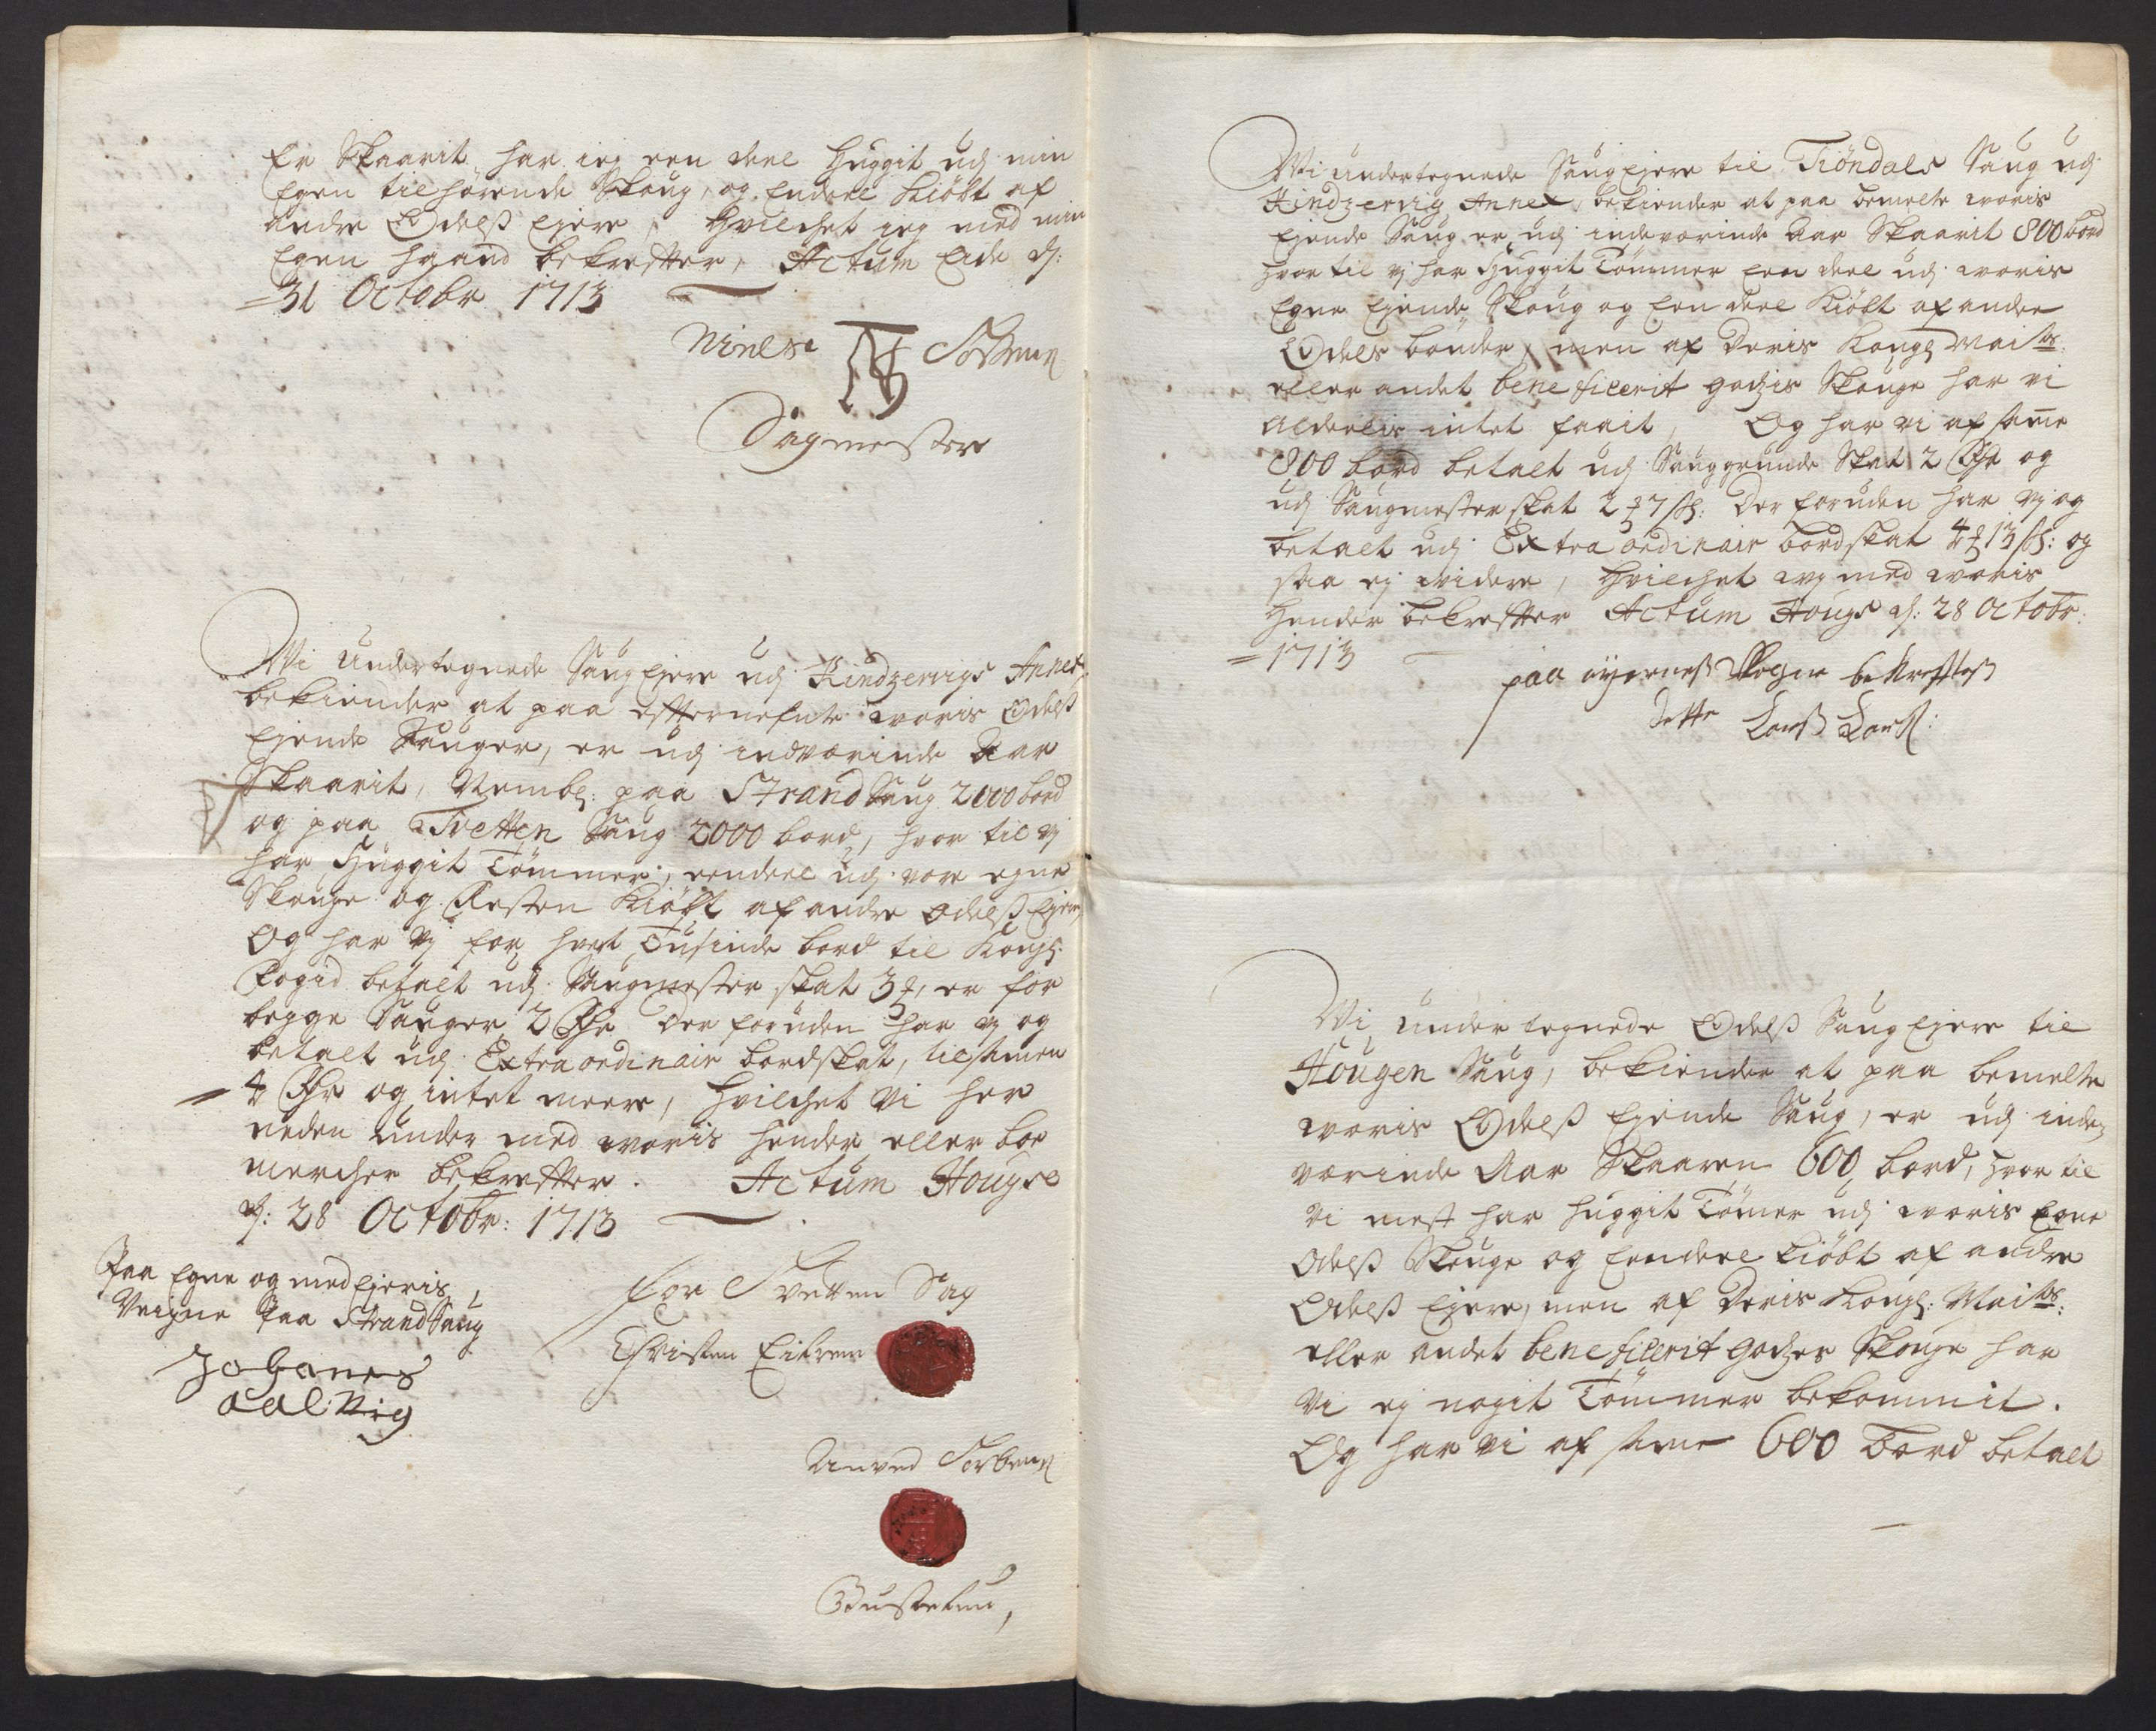 Er Skaarit, har ieg een deel Huggit udj min
Egen tilhørende Skoug, og Endeel Kiöbt af
andre Odelss Ejere, Hvilchet ieg med min
Egen haand bekrefter, Actum Eide dj:
31 Octobr 1713
Nielse
Dagmester
Wi undertegnede Saug Ejere udj Kindzervigs Annex,
bekiender at paa efternefnte woris Odelss
Ejende Sauger, er udj indværinde Aar
Skaarit, Nembl: paa Strand Saug 2000 bord
og paa Tvetten Saug 2000 bord, hvor til vj
har Huggit Tömmer, eendeel udj vore egne
Skouge og Resten Kiöbt af andre Odelss Ejere,
Og har vj for hvert Tusinde bord til Kongl:
Fogid betalt udj Saugmester skat 3 ₰, er for
begge Sauger 2 Rdr Der foruden har vj og
betalt udj Extra ordinair bordskat, tilsamen
4 Rdr og intet meere, Hvilchet Vi her
neden under med woris hender eller boe
mercher bekrefter. Actum Hougse
dj: 28 Octobr: 1713
Paa Egne og med Ejeris
Veigne Paa Strand Saug
Johanes
Aalvig
for Tvetten Sag
Christen Eitrem
Torbens
Wi undertegnede Saug Ejere til Tiöndals Saug udj
Kindzervig Annex, bekiender at paa bemelte woris
Ejende Saug er udj indeværinde Aar Skaarit 800 bord
hvor til vj har Huggit Tömmer Een deel udj woris
Egne Ejende Skoug og Een deel Kiöbt af andre
Odels bönder, men af Deris Kongl Maits:
eller andet beneficerit godzis Skouge har vi
Alderlis intet faait, Og har vi af same
800 bord betalt udj Sauggrunde Skat 2 Rdr og
udj Saugmester skat 2 ₰ 7 ss: Der foruden har vj og
betalt udj Extra ordinair bordskat 4 ₰ 13 ss: og
saa ej widere, Hvilchet wj med woris
Hender bekrefter Actum Hougse dj: 28 Octobr:
1713
paa eyernes Vegne bekreftes
dette Lars Lars:
Vi under tegnede Odelss Saug Ejere til
Hougen Saug, bekiender at paa bemelte
woris Odelss Ejende Saug, er udj inde
værinde Aar Skaaren 600 bord, hvor til
Vi mest har huggit Tömer udj woris Egne
Odelss Skouge og Eendeel kiöbt af andre
Odelss Ejere, men af Deris Kongl: Maits:
eller andet beneficerit godzes Skouge har
Vi ej nogit Tömmer bekommit.
Og har Vi af same 600 Bord betalt